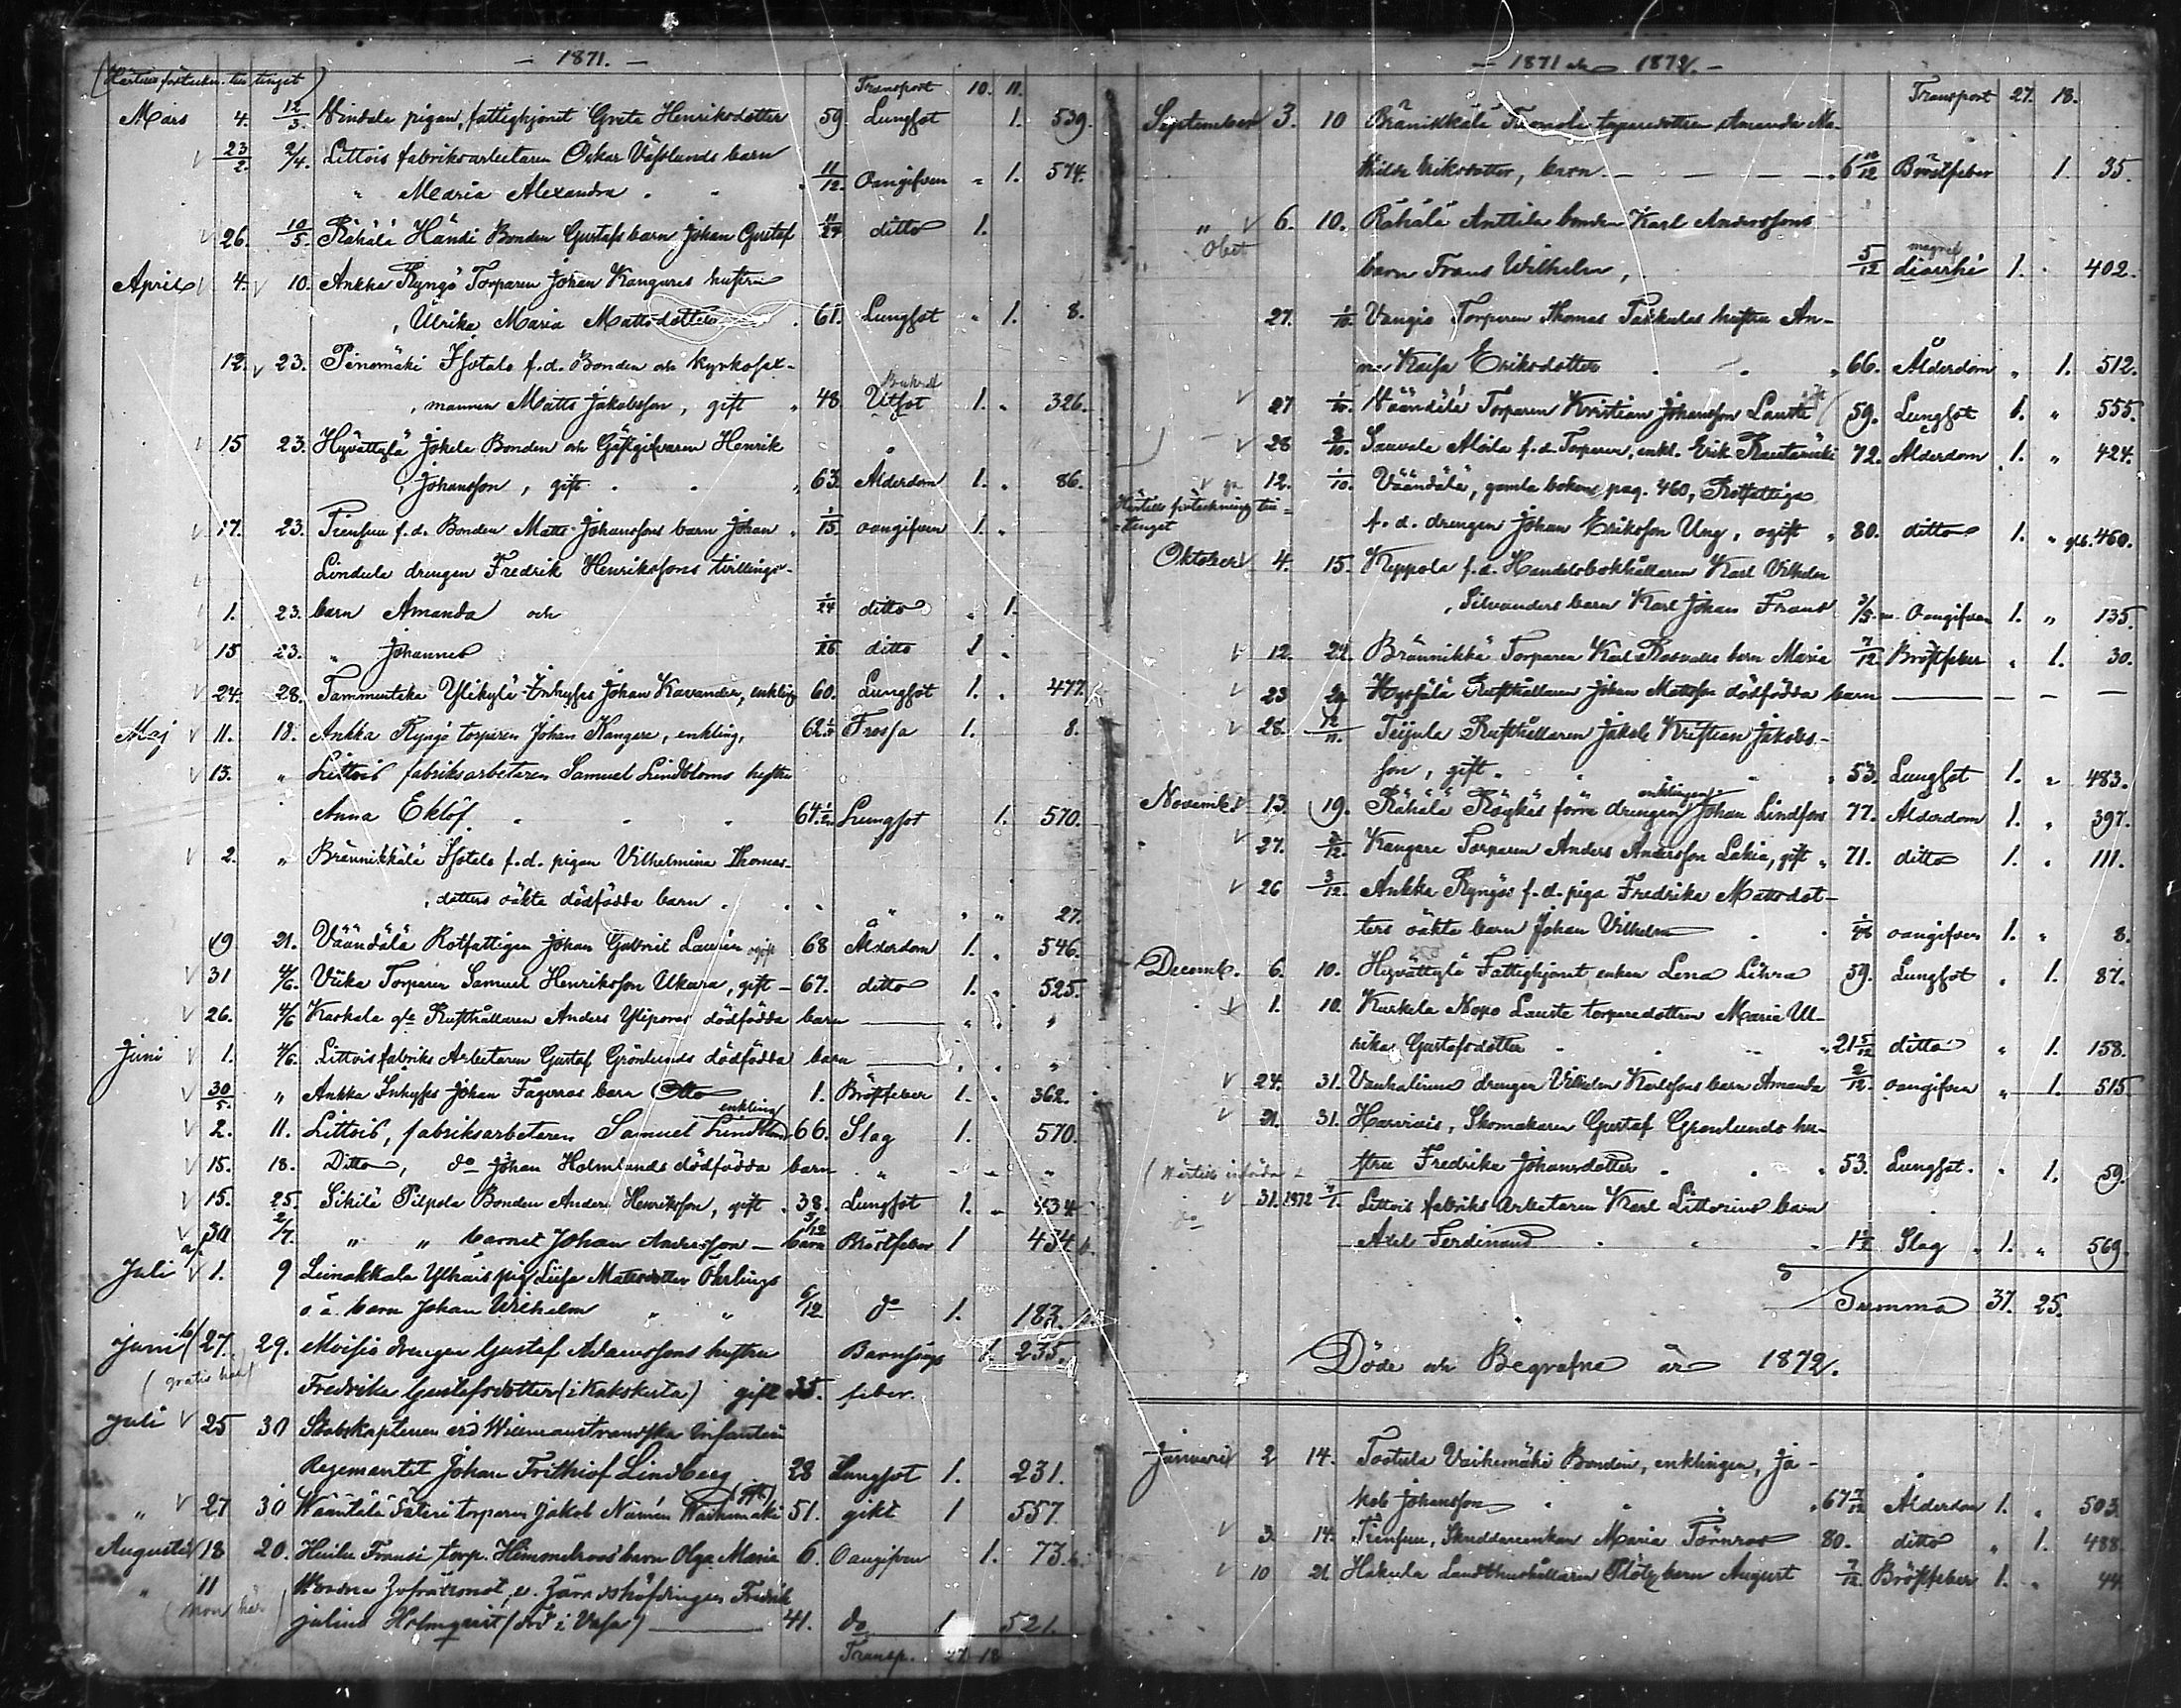 - 1871. -
Transport 10. 11.
Mars 4. 12/3. Vindala pigan, fattighjonet Greta Henriksdotter 59. Lungsot 1. 539.
23/2. 2/4. Littois fabriksarbetaren Oskar barn
" Maria Alexandra 11/12. Oangifven " 1. 574.
26. 10/5. Rähälä Händi Bonden Gustafs barn Johan Gustaf 11/24 ditto 1.
April 4. 10. Ankka Ryngö Torparen Johan Kangares hustru
Ulrika Maria Mattsdotter 61. Lungsot " 1. 8.
12. 23. Pinomäki Isotalo f.d. Bonden och kyrkosex-
mannen Matts Jakobsson, gift 48. Utsot 1. " 326.
15 23. Hyvättylä Jokela Bonden och Gästgifvaren Henrik
Johansson, gift 63. Ålderdom 1. " 86.
17. 23. f.d. Bonden Matts Johanssons barn Johan 1/15 oangifven 1. "
Lindula drengen Fredrik Henrikssons tvillings-
1. 23. barn Amanda och 1/24 ditto " 1.
15 23. " Johannes ditto 1 "
24. 28. Tammentaka Ylikylä Inhyses Johan Kavander, enkling 60. Lungsot 1. " 477.
Maj 11. 18. Ankka Ryngö torparen Johan Kangare, enkling, 62 Frossa 1. 8.
13. " Littois fabriksarbetaren Samuel Lindbloms hustru
Anna Eklöf 64 Lungsot 1. 570.
2. " Brännikkälä Isotalo f.d. pigan Vilhelmina Thomas-
dotters oäkta dödfödda barn " " " 27.
19 21. Väändälä Rotfattigen Johan Gabriel Laurén ogift 68 Ålderdom 1. " 546.
31 4/6. Torparen Samuel Henriksson Ukura, gift - 67. ditto 1. " 525.
26. 4/6 Kaskala Rusthållaren Anders Ylipovas dödfödda barn
Juni 1. 4/6. Littois fabriks Arbetaren Gustaf Grönlunds dödfödda barn
30/5. " Ankka Inhyses Johan Fageras barn Otto 1. Bröstfeber 1. " 362.
enkling
2. 11. Littois, fabriksarbetaren Samuel Lindblom 66. Slag 1. 570.
15. 18. Ditto, do Johan Holmlunds dödfödda barn " - - "
15. 25. Sikilä Pilpola Bonden Anders Henriksson, gift 38. Lungsot 1. " 434
30 2/7. " " barnet Johan Andersson - barn 5/12 Bröstfeber 1 434
Juli a/ 1. 9 Leinakkala pig Lisa Mattsdotter Öhrlings
o ä. barn Johan Wilhelm " " 6/12 do 1. 183.
Juni b/ 27. 29. Moisio drengen Gustaf Adamssons hustru Barnsängs 1. 235.
(gratis här) Fredrika Gustafsdotter (i Kakskerta) gift 35. feber.
Juli 25 30 Stabskaptenen vid Willmanstrandska Infanteri
Regementet Johan Frithiof Lindberg 28 Lungsot 1. 231.
" 27 30 Wääntälä Säteri torparen Jakob Numén (gift) 51. gikt 1 557.
Augusti 18 20. Huiko Fransi, torp. Himmelroos barn Olga Maria 6. Oangifven 1. 73.
" 11 Häradshöfdingen Fredrik
Julius Holmqvist (död i Vasa) 41. do 1 521.
Transp. 27 18
- 1871 och 1872. -
Transport 27. 18.
September 3. 10 Brännikkälä Tuomola torparedottern Amanda Ma-
thilda Eriksdotter, barn - - - 6 10/12 Bröstfeber 1. 35.
" 6. 10. Rähälä Anttila bonden Karl Anderssons
barn Frans Wilhelm, 5/12 diarrhé 1. " 402.
27. 1/10. Vangio Torparen Thomas Taskulas hustru An-
na Kaisa Eriksdotter 66. Ålderdom " 1. 512.
27 1/10. Väändälä Torparen Kristian Johansson Lauste gift 59. Lungsot 1. " 555.
28 8/10. Sauvala Alhola f.d. Torparen, enkl. Erik Rautamäki 72. Alderdom 1. " 424.
12. 1/10. Väändälä, gamla boken pag. 460, Rotfattige
f.d. drengen Johan Eriksson Ung, ogift 80. ditto 1. " glb. 460.
Oktober 4. 15. Keppola f.d. Handelsbokhållaren Karl Vilhelm
Silvanders barn Karl Johan Frans Oangifven 1. " 135.
12. 22. Brännikkä Torparen Karl Rosvalls barn Maria 7/12 Bröstfeber " 1. 30.
23 Hypsilä Rusthållaren Johan Mattsson dödfödda barn - - - -
28. 12/11. Teijula Rusthållaren Jakob Kristian Jakobs-
son, gift 53. Lungsot 1. " 483.
enklingen
Novemb. 13. 19. Rähälä Röykäs förre drengen Johan Lindfors 77. Alderdom 1. " 397.
27. 3/12. Kangare Torparen Anders Andersson Lakia, gift 71. ditto 1. " 111.
26 3/12. Ankka Ryngös f.d. piga Fredrika Mattsdot-
ters oäkta barn Johan Vilhelm oangifven 1. " 8.
Decemb. 6. 10. Hyvättylä Fattighjonet enkan Lena Lihra 59. Lungsot " 1. 87.
1. 10. Kurkela Nopo Lauste torparedottren Maria Ul-
rika Gustafsdotter 21 5/12 ditto " 1. 158.
24. 31. Vanhalinna drengen Vilhelm Karlssons barn Amanda 2/12. oangifven " 1. 515
21. 31. Harvois, Skomakaren Gustaf Grönlunds hu-
stru Fredrika Johansdotter 53. Lungsot. " 1. 59.
31. 1872 7/1. Littois fabriks arbetaren Karl Littorins barn
Axel Ferdinand 1 1/2 Slag 1. " 569.
Summa 37. 25.
Döde och Begrafne år 1872.
Januari 2 14. Tostula Vaihemäki Bonden, enklingen, Ja-
kob Johansson 67 7/12 Ålderdom 1. " 503.
3. 14. Skreddareenkan Maria Törnroos 80. ditto " 1. 488.
10 21. Hakula Landbohushållaren barn August 7/12 Bröstfeber 1. " 44.